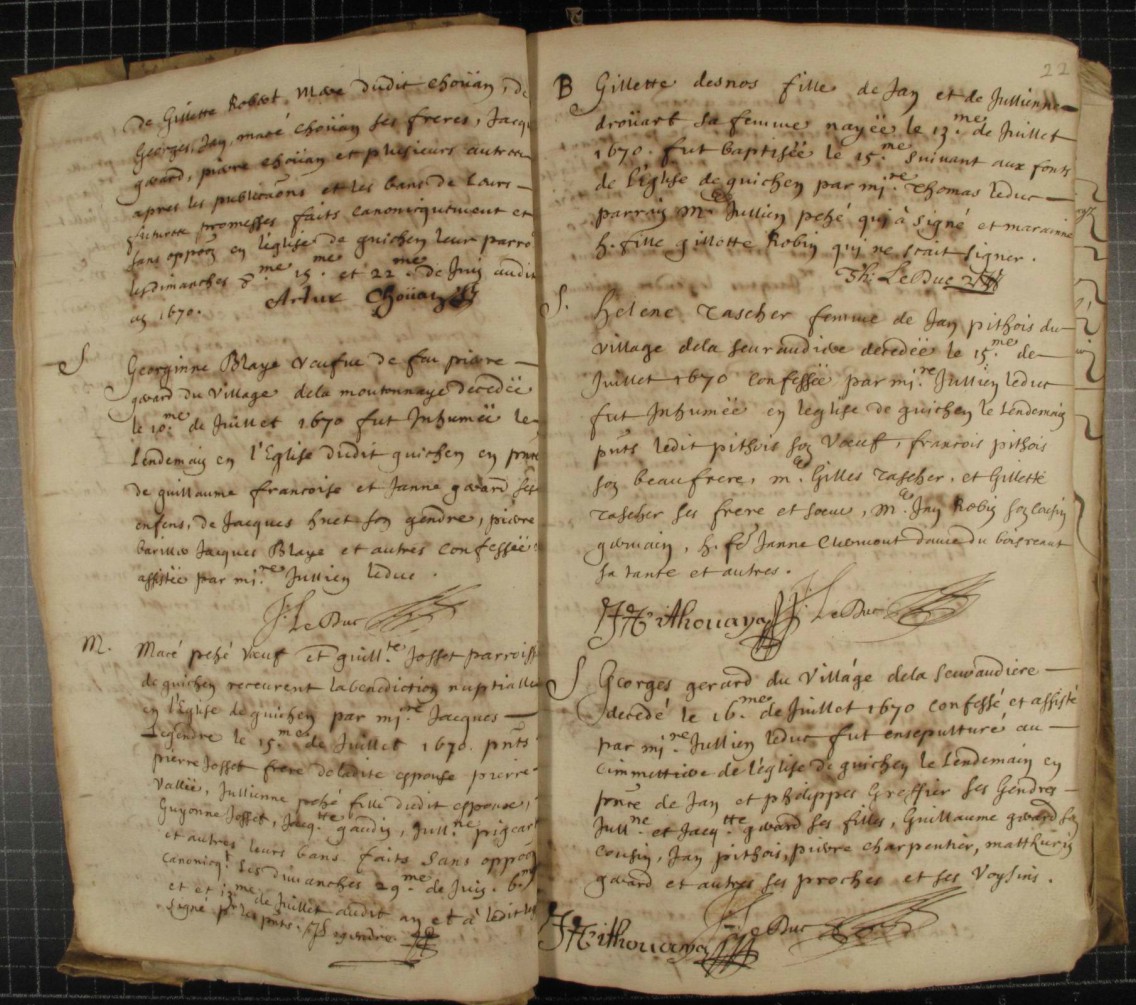 de Gillette Robert Mere dudit choüan, de
Georges, Jan, macé choüan ses freres, Jacqu
gerard, pierre choüan et plusieurs autres
apres les publicaons et les bans de leurs
future promesses faits canonicquement et
sans oppoon en l'église de guichen leur parro
les dimanches 8.me 15.me et 22.me de Juin audit
an 1670.
Artur Choüan
S. Georginne Blaye veufue de feu pierre
gerard du village dela moutonnaye decedée
le 10.me de Juillet 1670 fut Inhumée le
Lendemain en l'Eglise dudit guichen en pnce
de guillaume francoise et Janne gerard ses
enfens, de Jacques huet son gendre, pierre
Jacques Blaye et autres confessée
assistée par mi.re Jullien leduc.
J. Le Duc
M. Macé pehé veuf Et guill.te Josset parroiss
de guichen receurent la benediction nuptialle
en l'église de guichen par mi.re Jacques
Lejendre le 15.me de Juillet 1670. pnts
pierre Josset frere deladite epouse pierre
Vallée, Jullienne pehé fille dudit epouse,
Guyonne Josset, Jacq.tte gaudin, Jull.ne pigeart
et autres leurs bans faits sans oppoon
canonicqt les dimanches 29.me de Juin. 6.me
et 13.me de Juillet audit an et a ledit
signé
22
B Gillette desnos fille de Jan et de Jullienne
droüart sa femme nayëe le 13.me de Juillet
1670. fut baptisée le 15.me suivant aux fonts
de l'église de guichen par mi.re Thomas leduc
parrain M.e Jullien pehé qui à signé et maraine
h. fille gillette Robin qui ne scait signer.
Th: Le Duc
S. helene Tascher femme de Jan pithois du
village dela seuraudiere decedée le 15.me de
Juillet 1670 confessée par mi.re Jullien leduc
fut Inhumée en leglise de guichen le Lendemain
pnts ledit pithois son Voeuf, francois pithois
son beaufrere, m.e Gilles Tascher, et Gillette
Tascher ses frere et soeur, M.e Jan Robin son cousin
germain, h. fe Janne Clermont dame du boisreant
sa tante et autres.
J. Le Duc
S Georges gerard du Village dela seuraudiere
decedé le 16.me de Juillet 1670 confessé et assisté
par mi.re Jullien leduc fut ensepulturé au
cimmettiere de l'église de guichen le Lendemain en
pnce de Jan et philippes Greffier ses Gendres
Jull.ne et Jacq.tte gerard ses filles, Guillaume gerard son
cousin, Jan pithois, pierre charpentier, matthurin
gerard et autres ses proches et ses Voysins.
J. Le Duc